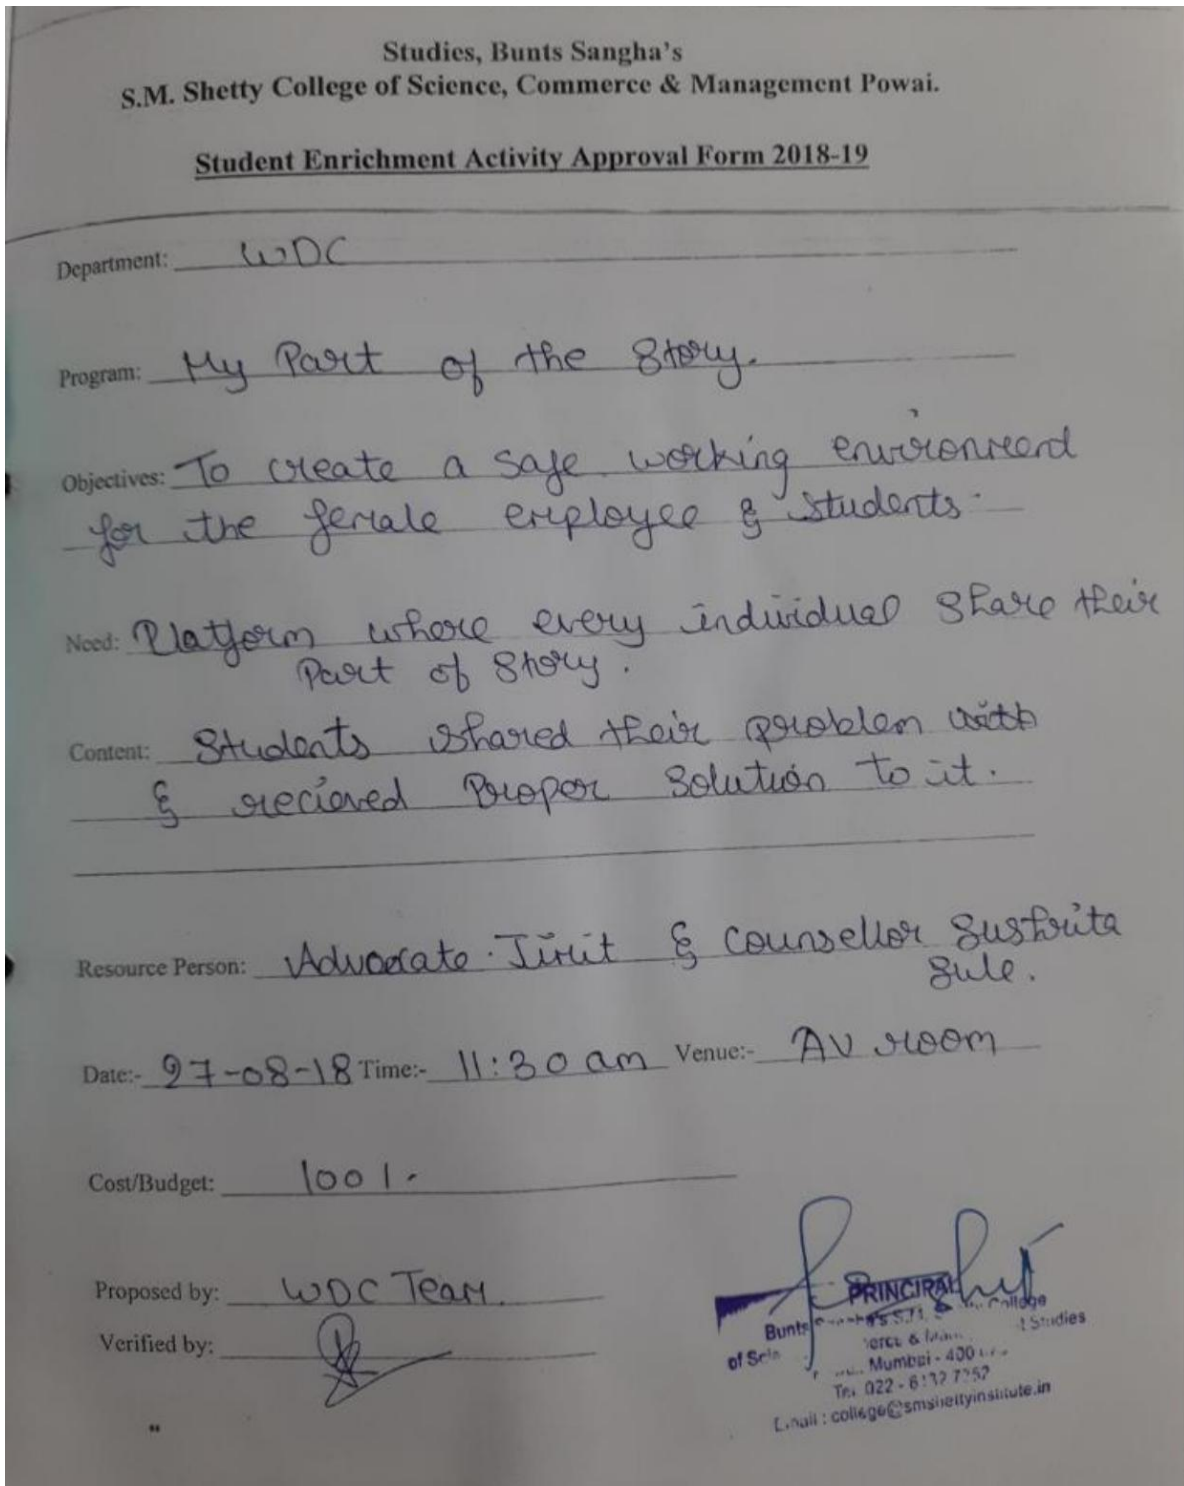 Studies, Bunts Sangha's
S.M. Shetty College of Science, Commerce & Management Powai.
Student Enrichment Activity Approval Form 2018-19
Department: WDC
Program: My Part of the Story.
Objectives: To create a safe working environment
for the female employee & students.
Need: Platform where every individual share their
Part of Story.
Content: Students shared their problem with
& recieved Proper Solution to it.
Resource Person: Advocate. & Counsellor
Sule.
Date:- 27-08-18 Time:- 11:30 am Venue:- AV room
Cost/Budget: 100/-
Proposed by: WDC Team.
Verified by:
PRINCIPAL
Bunts S.M. College
of & Studies
Mumbai - 400
Tel 022 - 6132 7352
Email : college@smshettyinstitute.in